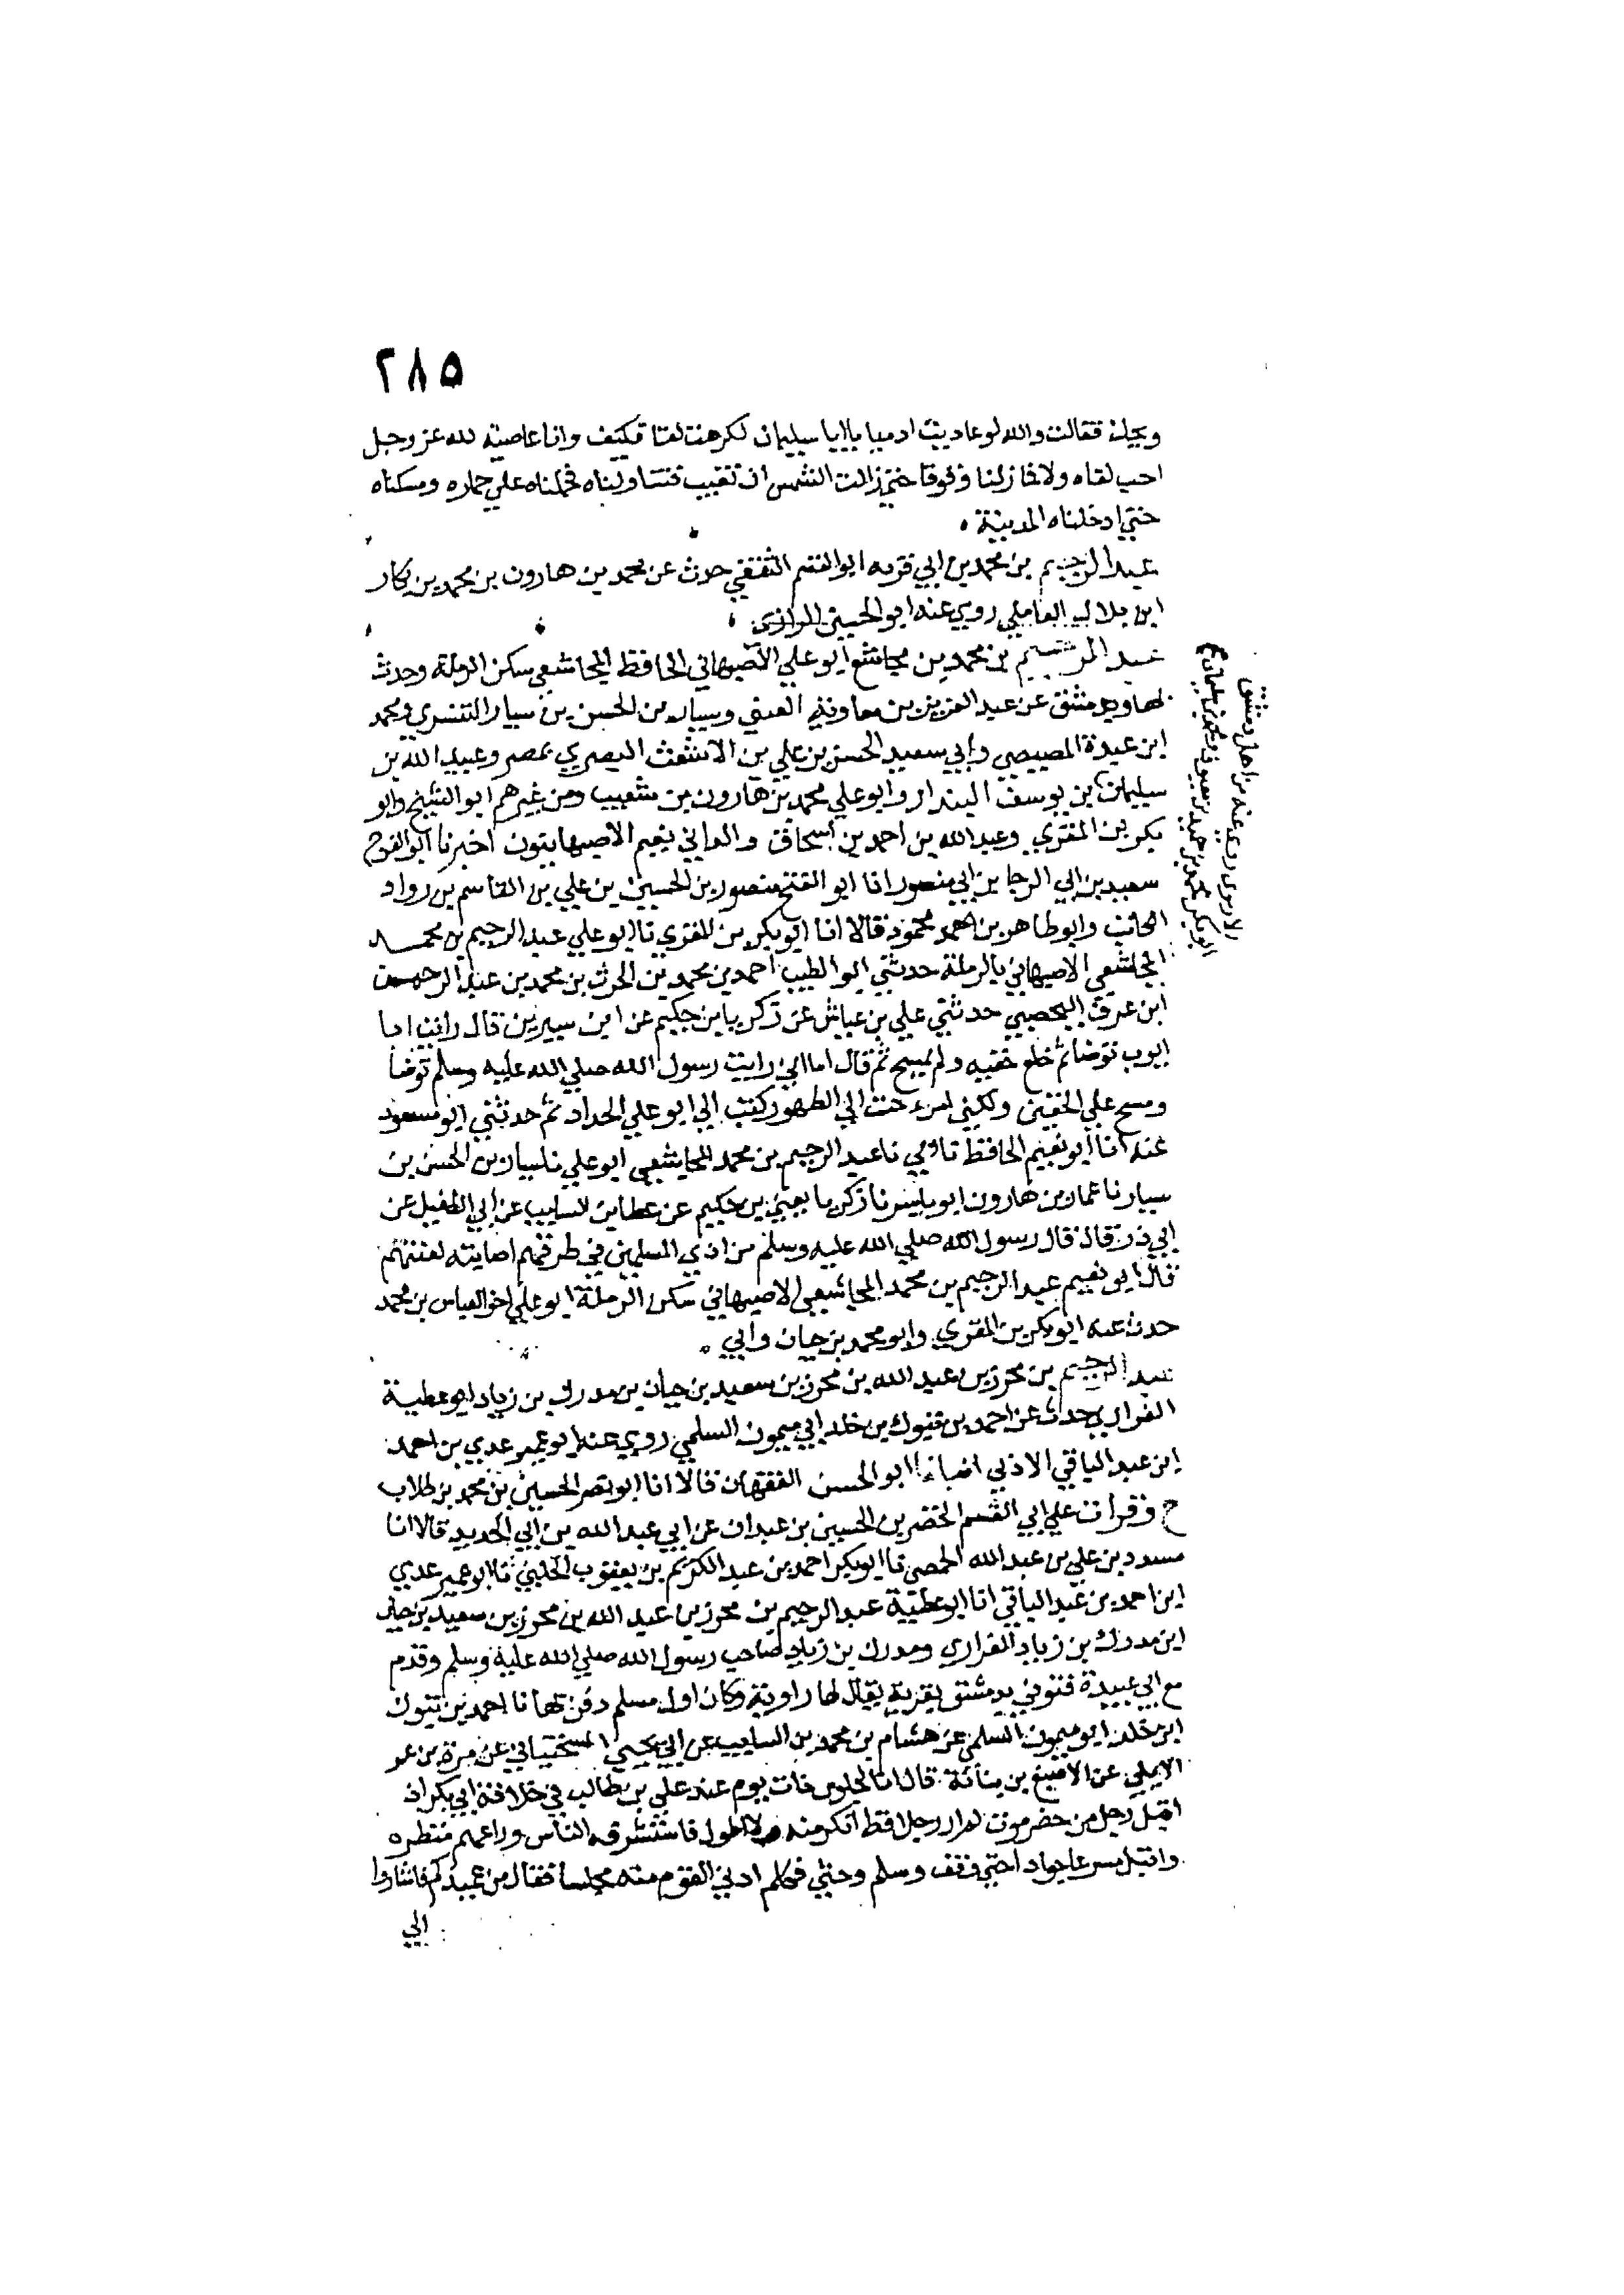 ٢٨٥
ويحك فقالت والله لو عاديت ادميا يا ابا سليمان لكرهت لقاه فكيف وانا عاصيته لله عز وجل
احب لقاه ولا فما زلنا وقوفا حتى زالت الشمس ان تغيب فتساولناه فحملناه علي حماره ومسكناه
حتى ادخلناه المدينة
عبد الرحيم بن محمد بن ابي قرصه ابو القسم الثقفي حدث عن محمد بن هارون بن محمد بن بكار
ابن بلال العاملي روى عنه ابو الحسين الرازي
عبد الرحيم بن محمد بن مجاشع ابو علي الاصبهاني الحافظ المجاشعي سكن الرملة وحدث
بها وبدمشق عن عبد العزيز بن معاوية العتبي وسيار بن الحسن بن سيار التستري ومحمد
ابن عبدة المصيصي وابي سعيد الحسن بن علي بن الاشعث البصري بمصر وعبيد الله بن
سليمان بن يوسف البندار وابو علي محمد بن هارون بن شعيب ومن غيرهم ابو الشيخ وابو
بكر بن المقري وعبد الله بن احمد بن اسحاق والد ابي نعيم الاصبهانيون اخبرنا ابو الفرج
سعيد بن ابي الرجا بن ابي منصور انا ابو الفتح منصور بن الحسين بن علي بن القاسم بن رواد
الكاتب وابو طاهر بن احمد محمود قالا انا ابو بكر بن المقري نا ابو علي عبد الرحيم بن محمد
المجاشعي الاصبهاني بالرملة حدثني ابو الطيب احمد بن محمد بن الحرث بن محمد بن عبد الرحمن
ابن عرق اليحصبي حدثني علي بن عياش عن زكريا بن حكيم عن ابن سيرين قال رايت ابا
ايوب توضا ثم خلع خفيه ولم يمسح ثم قال اما اني رايت رسول الله صلي الله عليه وسلم توضا
ومسح علي الخفين ولكني امرء حبب الي الطهور كتب الي ابو علي الحداد ثم حدثني ابو مسعود
عنه انا ابو نعيم الحافظ نا ابي نا عبد الرحيم بن محمد المجاشعي ابو علي نا سيار بن الحسن بن
سيار نا عمار بن هارون ابو ياسر نا زكريا يعني بن حكيم عن عطا بن السايب عن ابي الطفيل عن
ابي ذر قال قال رسول الله صلي الله عليه وسلم من اذي المسلمين في طرقهم اصابته لعنتهم
قال ابو نعيم عبد الرحيم بن محمد المجاشعي الاصبهاني سكن الرملة ابو علي اخو العباس بن محمد
حدث عنه ابو بكر بن المقري وابو محمد بن حيان وابي
عبد الرحيم بن محرز بن عبد الله بن محرز بن سعيد بن حيان بن مدرك بن زياد ابو عطية
الفزاري حدث عن احمد بن تبوك بن خلد ابي ميمون السلمي روى عنه ابو عمير عدي بن احمد
ابن عبد الباقي الاذني انبانا ابو الحسن الفقهان قالا انا ابو نصر الحسين بن محمد بن طلاب
ح وقرات علي ابي القسم الخضر بن الحسين بن عبدان عن ابي عبد الله بن ابي الحديد قالا انا
مسدد بن علي بن عبد الله الحمصي نا ابو بكر احمد بن عبد الكريم بن يعقوب الحلبي نا ابو عمير عدي
ابن احمد بن عبد الباقي انا ابو عطية عبد الرحيم بن محرز بن عبد الله بن محرز بن سعيد بن حيان
ابن مدرك بن زياد الفزاري ومدرك بن زياد صاحب رسول الله صلي الله عليه وسلم وقدم
مع ابي عبيدة فتوفي بدمشق بقرية يقال لها راوية وكان اول مسلم دفن بها نا احمد بن تبوك
ابن خلد ابو ميمون السلمي عن هشام بن محمد بن السايب عن ابي يحيي السختياني عن مرة بن عمر
الايلي عن الاصبغ بن نباتة قال انا لجلوس ذات يوم عند علي بن طالب في خلافة ابي بكر اذ
اقبل رجل من حضرموت لم ار رجلا قط انكر منه ولا اطول فاستشرفه الناس وراعهم منظره
واقبل مسرعا جوادا حتي وقف وسلم وجثي فكلم ادني القوم منه مجلسا فقال من عميدكم فاشاروا
الي
من اهل دمشق
الارموى روى عنه
ابو بكر محمد بن حميد بن معيوف ومحمد بن سليمان